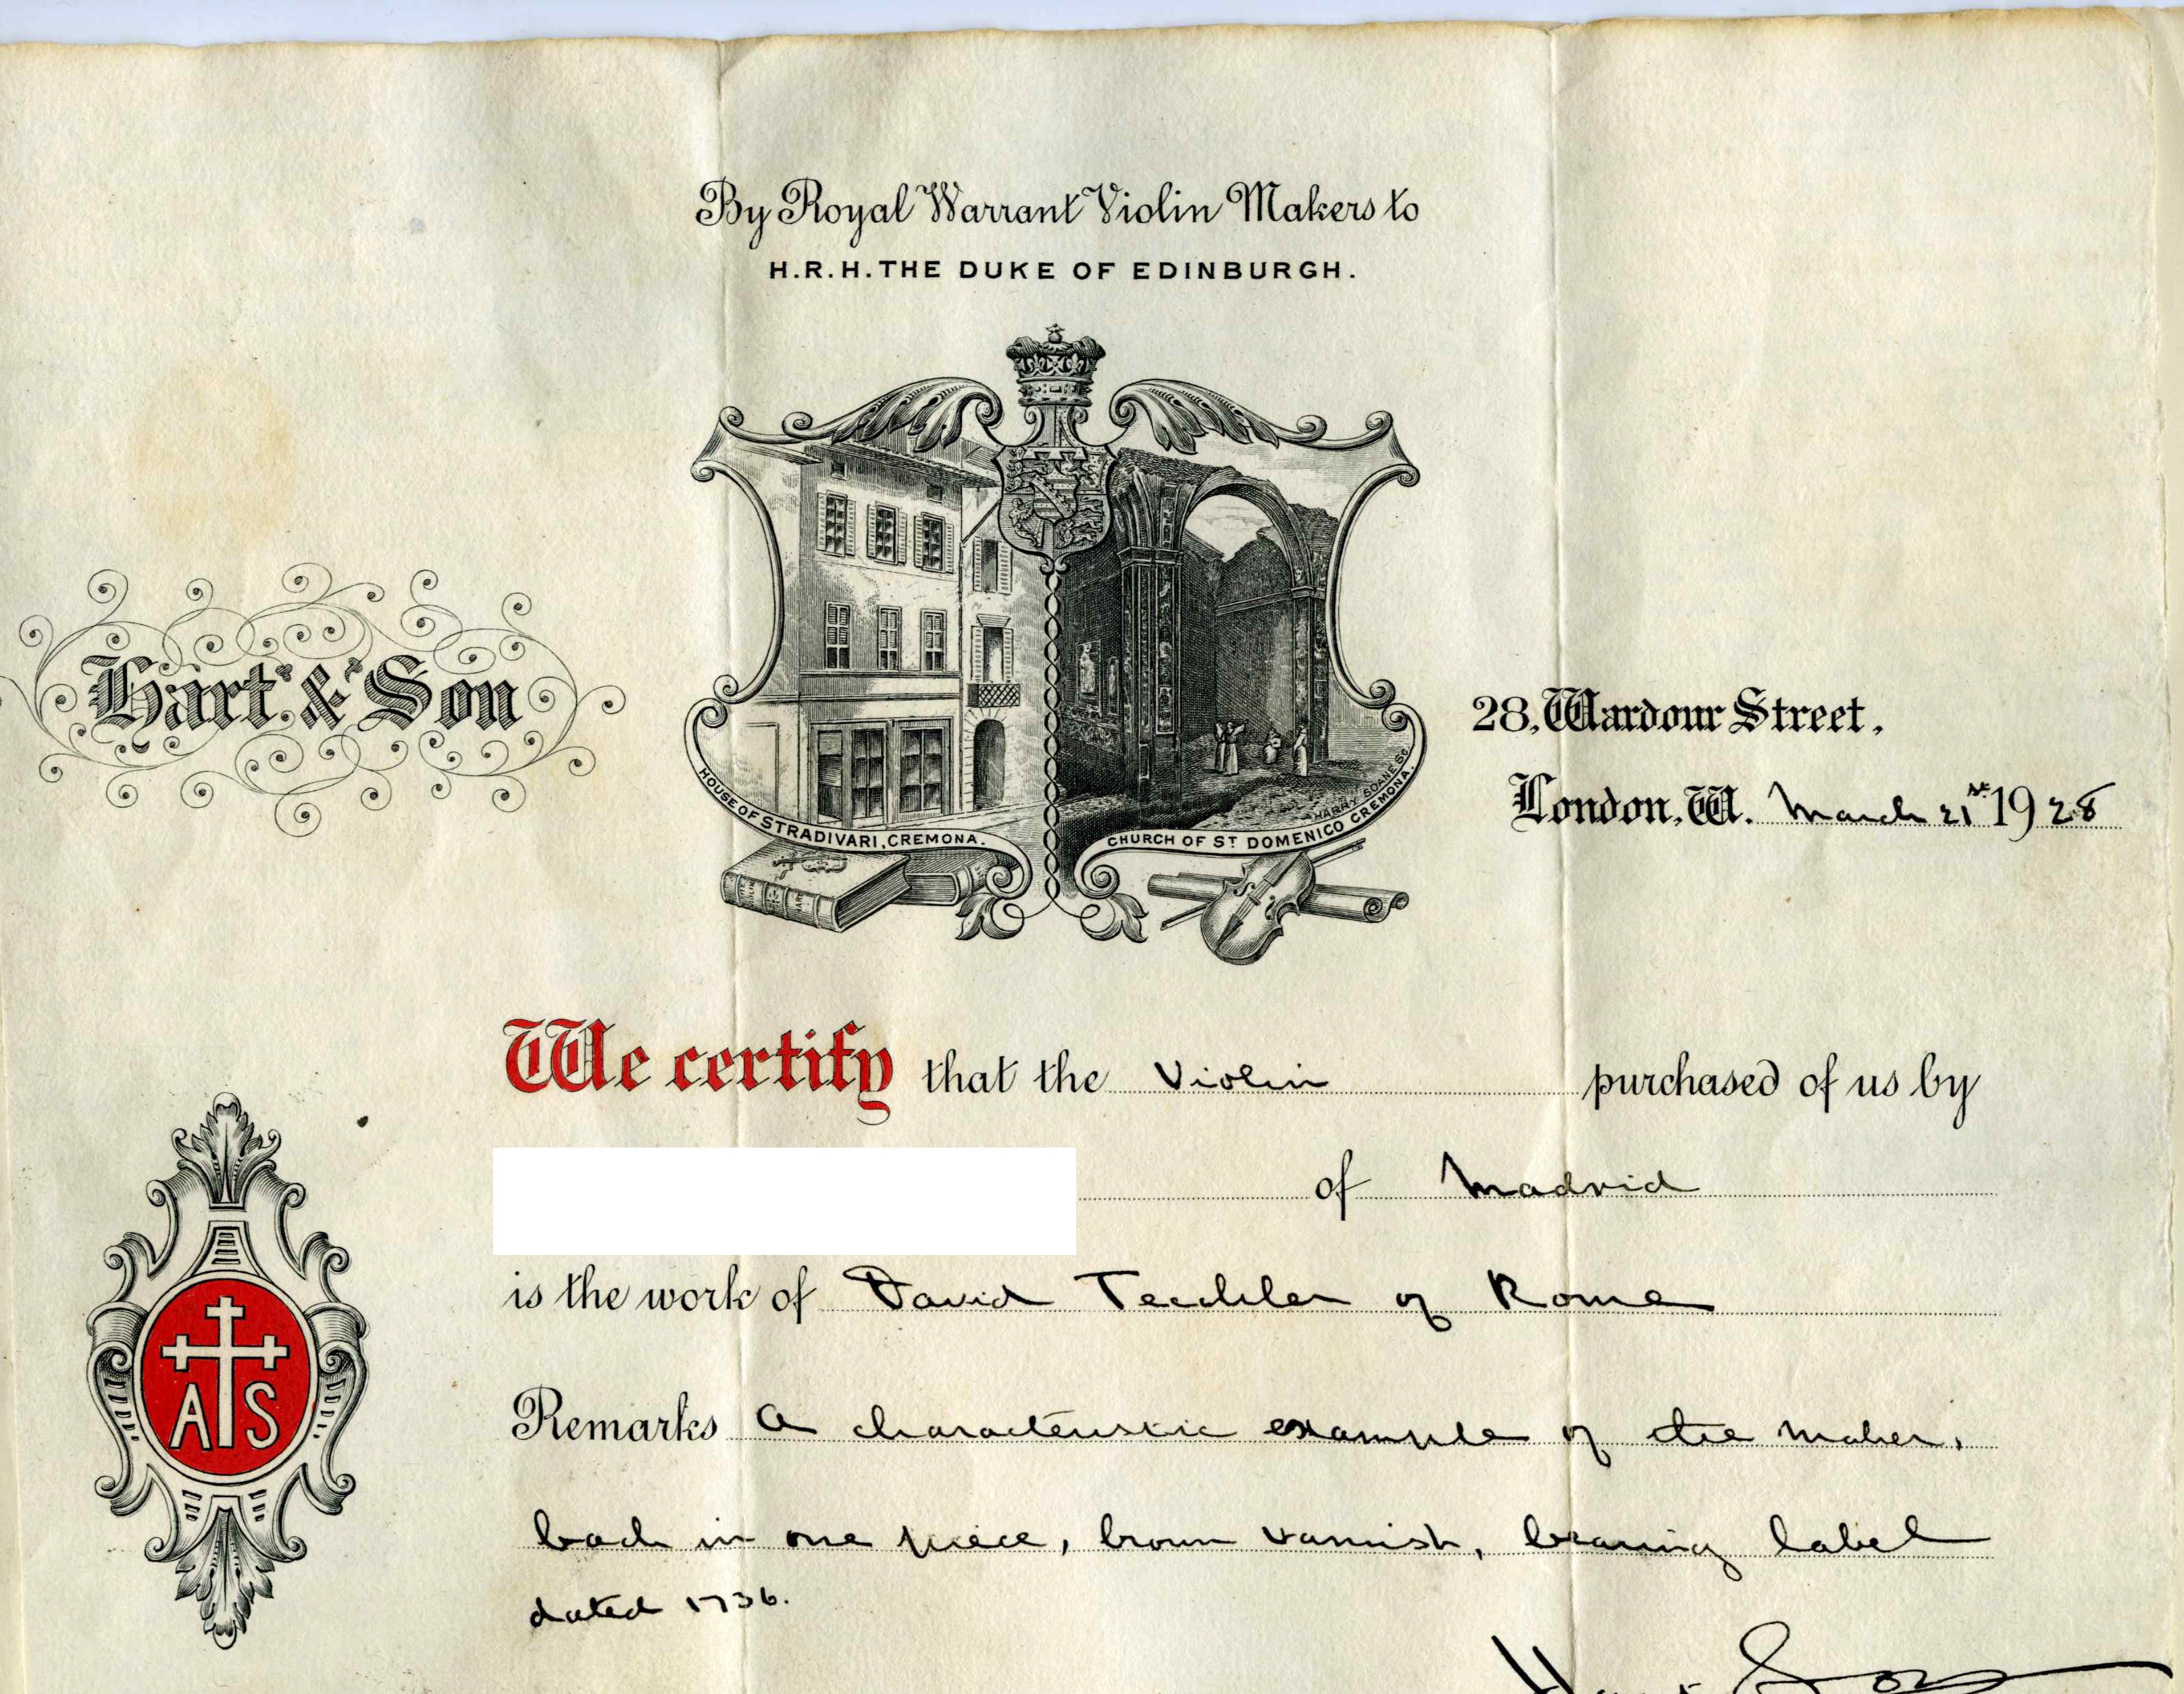 By Royal Warrant Violin Makers to
H.R.H. THE DUKE OF EDINBURGH.
Hart & Son
HOUSE OF STRADIVARI, CREMONA.
CHURCH OF ST DOMENICO CREMONA.
HARRY SOANE SC
28, Wardour Street,
London, W. March 21st 1928
We certify that the Violin purchased of us by
of Madrid
is the work of David Techler of Rome
A T S
Remarks A characteristic example of the maker,
back in one piece, brown varnish, bearing label
dated 1736.
Hart & Son